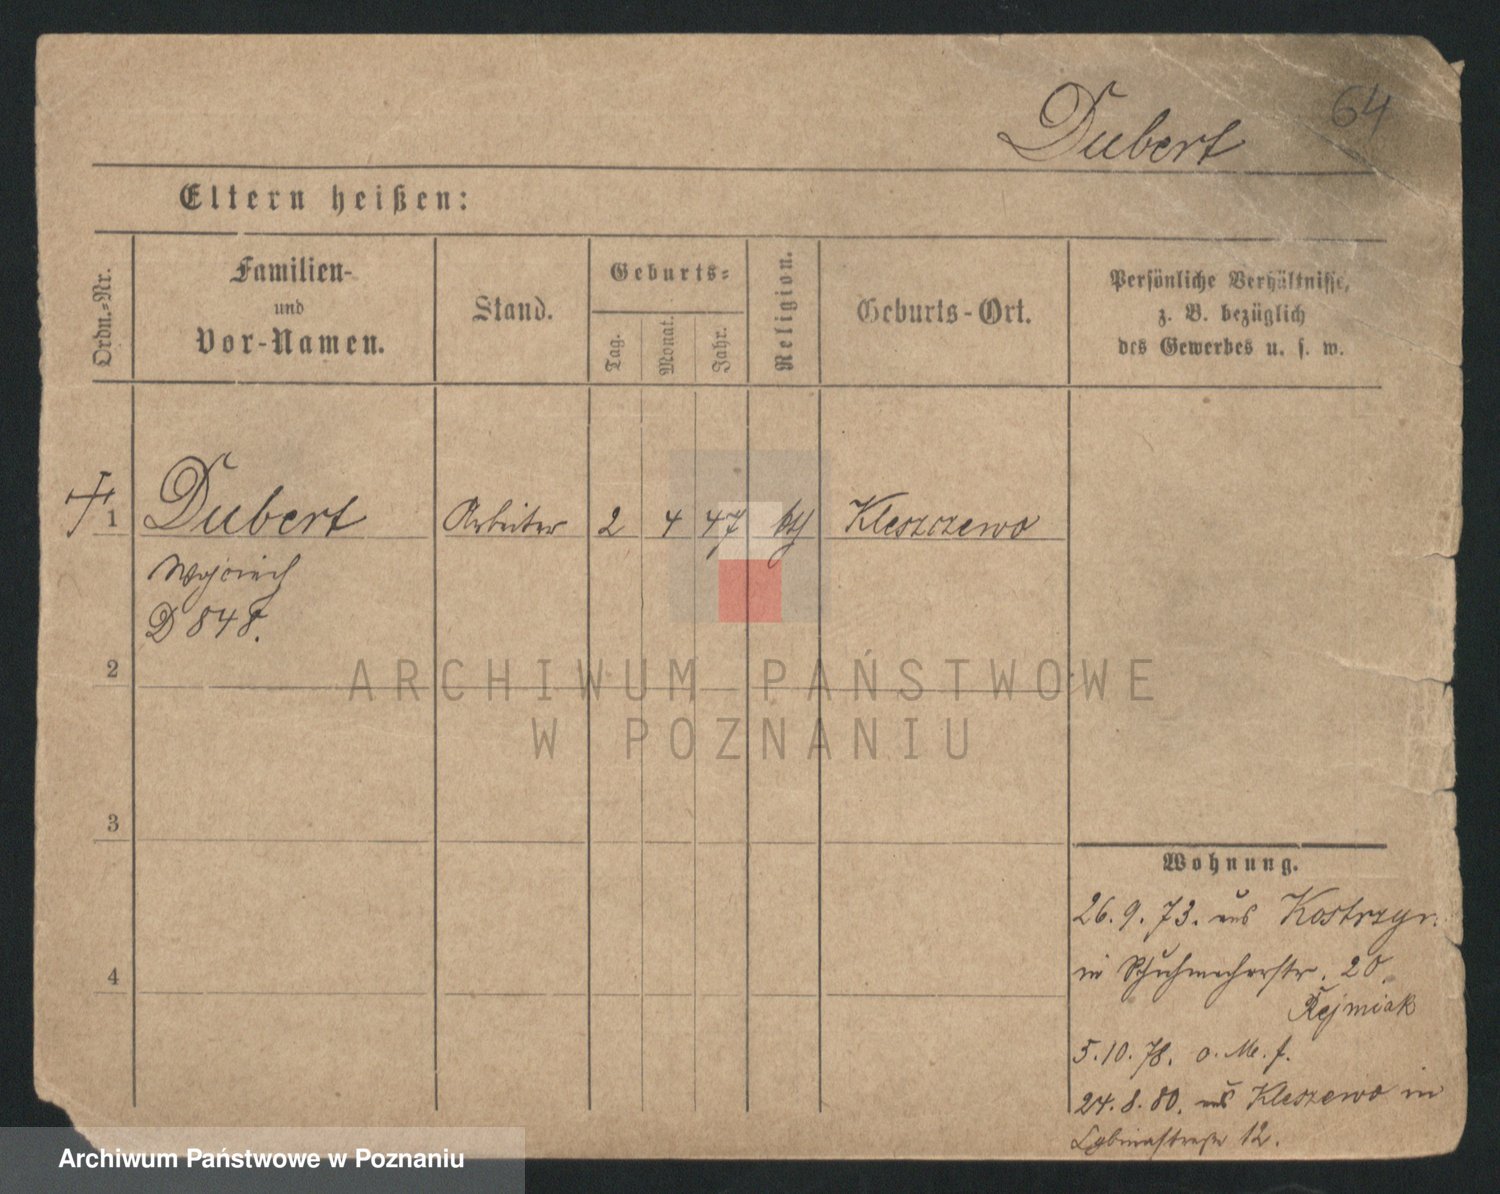 64
Dubert
Eltern heißen:
Ordn.-Nr.
Familien-
und
Vor-Namen.
Stand.
Geburts-
Tag.
Monat.
Jahr.
Religion.
Geburts-Ort.
Persönliche Verhältnisse,
z. B. bezüglich
des Gewerbes u. s. w.
1 Dubert Arbeiter 2 4 47 kth Kleszczewo
Wojciech
D 848.
2
3
4
ARCHIWUM PAŃSTWOWE
W POZNANIU
Wohnung.
26. 9. 73. aus Kostrzyn.
in Schuhmacherstr. 20.
Rejmiak
5. 10. 78. o. M. f.
24. 8. 80. aus Kleszewo in
12.
Archiwum Państwowe w Poznaniu